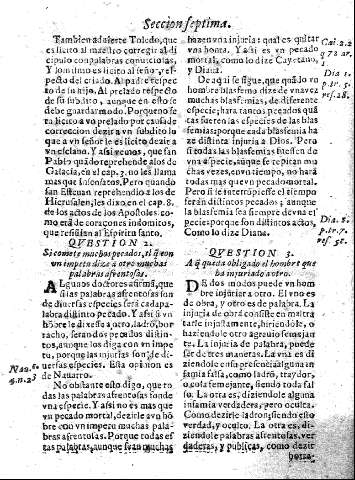 Seccion septima.
Tambien aduierte Toledo, que
es licito al maestro corregir al di
cipulo con palabras conuiciosas,
Y lo mismo es licito al señor, res-
pecto del criado. Al padre respec
to de su hijo. Al prelado respecto
de su subdito, aunque en esto se
debe guardar modo. Porque no se
ra licito a vn prelado por causa de
correccion dezir a vn subdito lo
que a vn señor le es licito dezir a
vn esclauo. Y asi vemos, que san
Pablo quãdo reprehende a los de
Galacia, en el cap. 3. no les llama
mas que insensatos. Pero quando
san Esteuan reprehendio a los de
Hierusalen, les dixo en el cap. 8.
de los actos de los Apostoles. co-
mo erã de coraçones indomitos,
que resistian al Spiritu santo.
QVESTION 2.
Si comete muchos pecados, el q̃ con
vn impetu dize à otro muchas
palabras afrentosas.
Algunos doctores afirmã, que
si las palabras afrentosas son
de diuersas especies serà cada pa-
labra distinto pecado. Y asi si vn
hõbre le dixesse a otro, ladrõ, bor
racho, seran dos pecados distin-
tos, aunque los diga con vn impe-
tu, porque las injurias son de di-
uersas especies. Esta opinion es
de Nauarro.
No obstante esto digo, que to
das las palabras afrentosas son de
vna especie. Y asi no es mas que
vn pecado mortal, dezirle a vn hõ
bre con vn impetu muchas pala-
bras afrentosas. Porque todas es
tas palabras, aunque sean muchas
Naua.
q.n.23
hazen vna injuria: qual es quitar
vna honra. Y asi es vn pecado
mortal, como lo dize Cayetano,
y Diana.
De aqui se sigue, que quãdo vn
hombre blasfemo dize de vna vez
muchas blasfemias, de diferente
especie; hara tantos pecados quã
tas fueren las especies de las blas
femias: porque cada blasfemia ha
ze distinta injuria a Dios. Pero
si todas las blasfemias fuessen de
vna especie, aunque se repitan mu
chas vezes, en vn tiempo, no harà
todas mas que vn pecado mortal.
Pero si se interrũpiesse el tiempo
seràn distintos pecados; aunque
la blasfemia sea siempre de vna es
pecie: porque son distintos actos,
Como lo dize Diana.
Cai. 2.2
q 72 ar.
Dia 1.
p.tr. 5.
res.28.
Dia. 2.
p.tr.7.
res 5.
QVESTION 3.
A q̃ queda obligado el hombre que
ha injuriado a otro.
De dos modos puede vn hom
bre injuriar a otro. El vno es
de obra, y otro es de palabra. La
injuria de obra consiste en maltra
tarle injustamente, hiriendole, o
haziendole otro agrauio semejan-
te. La injuria de palabra, puede
ser de tres maneras. La vna es, di-
ziendole en su presencia alguna in
famia falsa, como ladrõ, traydor,
o cosa semejante, siendo toda fal
so. La otra es, diziendole alguna
infamia verdadera, pero oculta.
Como dezirle ladron, siendo esto
verdad, y oculto. La otra es, di-
ziendole palabras afrentosas, ver
daderas, y publicas, como dezir